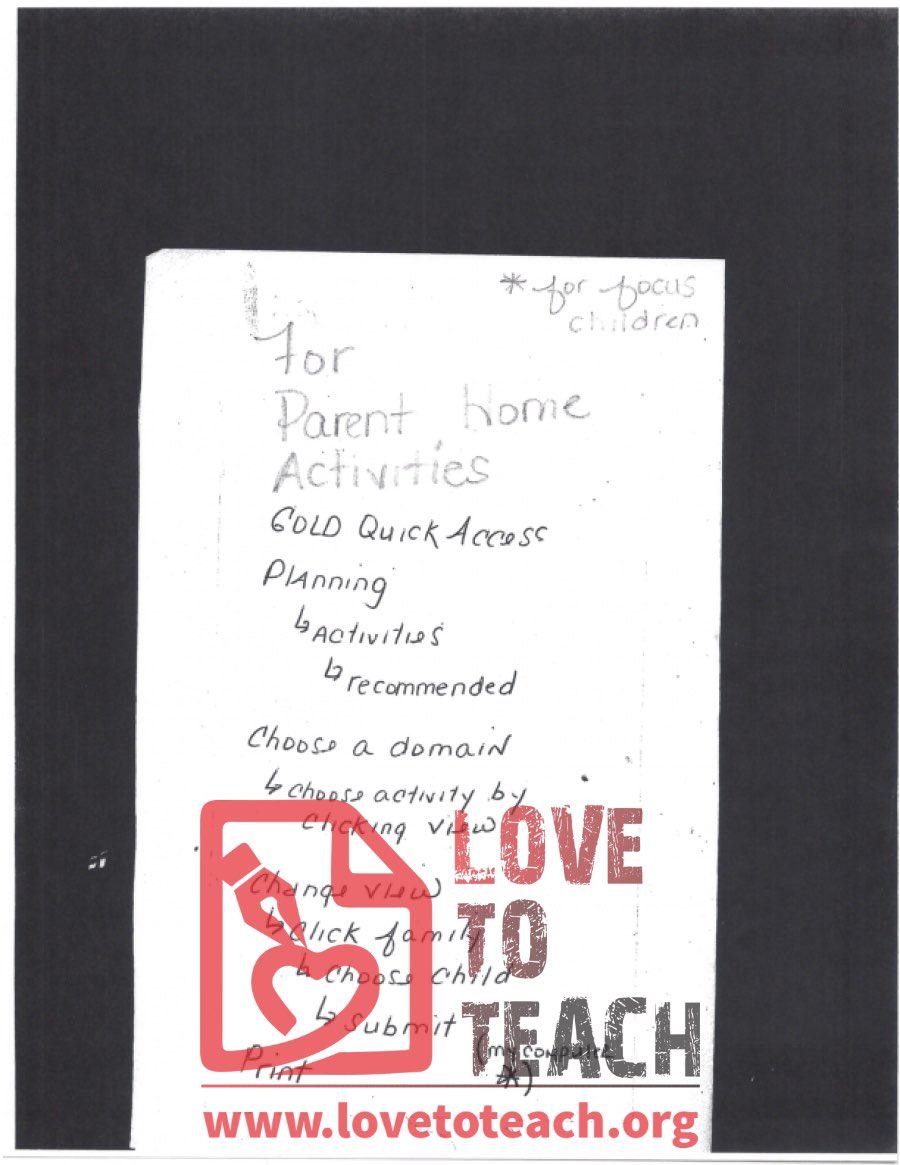 * for focus
children
For
Parent Home
Activities
GOLD Quick Access
Planning
↳ Activities
↳ recommended
Choose a domain
↳ choose activity by
clicking view
Change view
↳ click family
↳ choose child
↳ submit
Print (my computer
*)
LOVE
TO
TEACH
www.lovetoteach.org